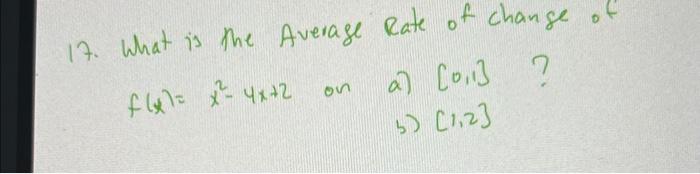 17. What is the Average Rate of change of
f(x)= x²-4x+2 on a) [0,1] ?
b) [1,2]